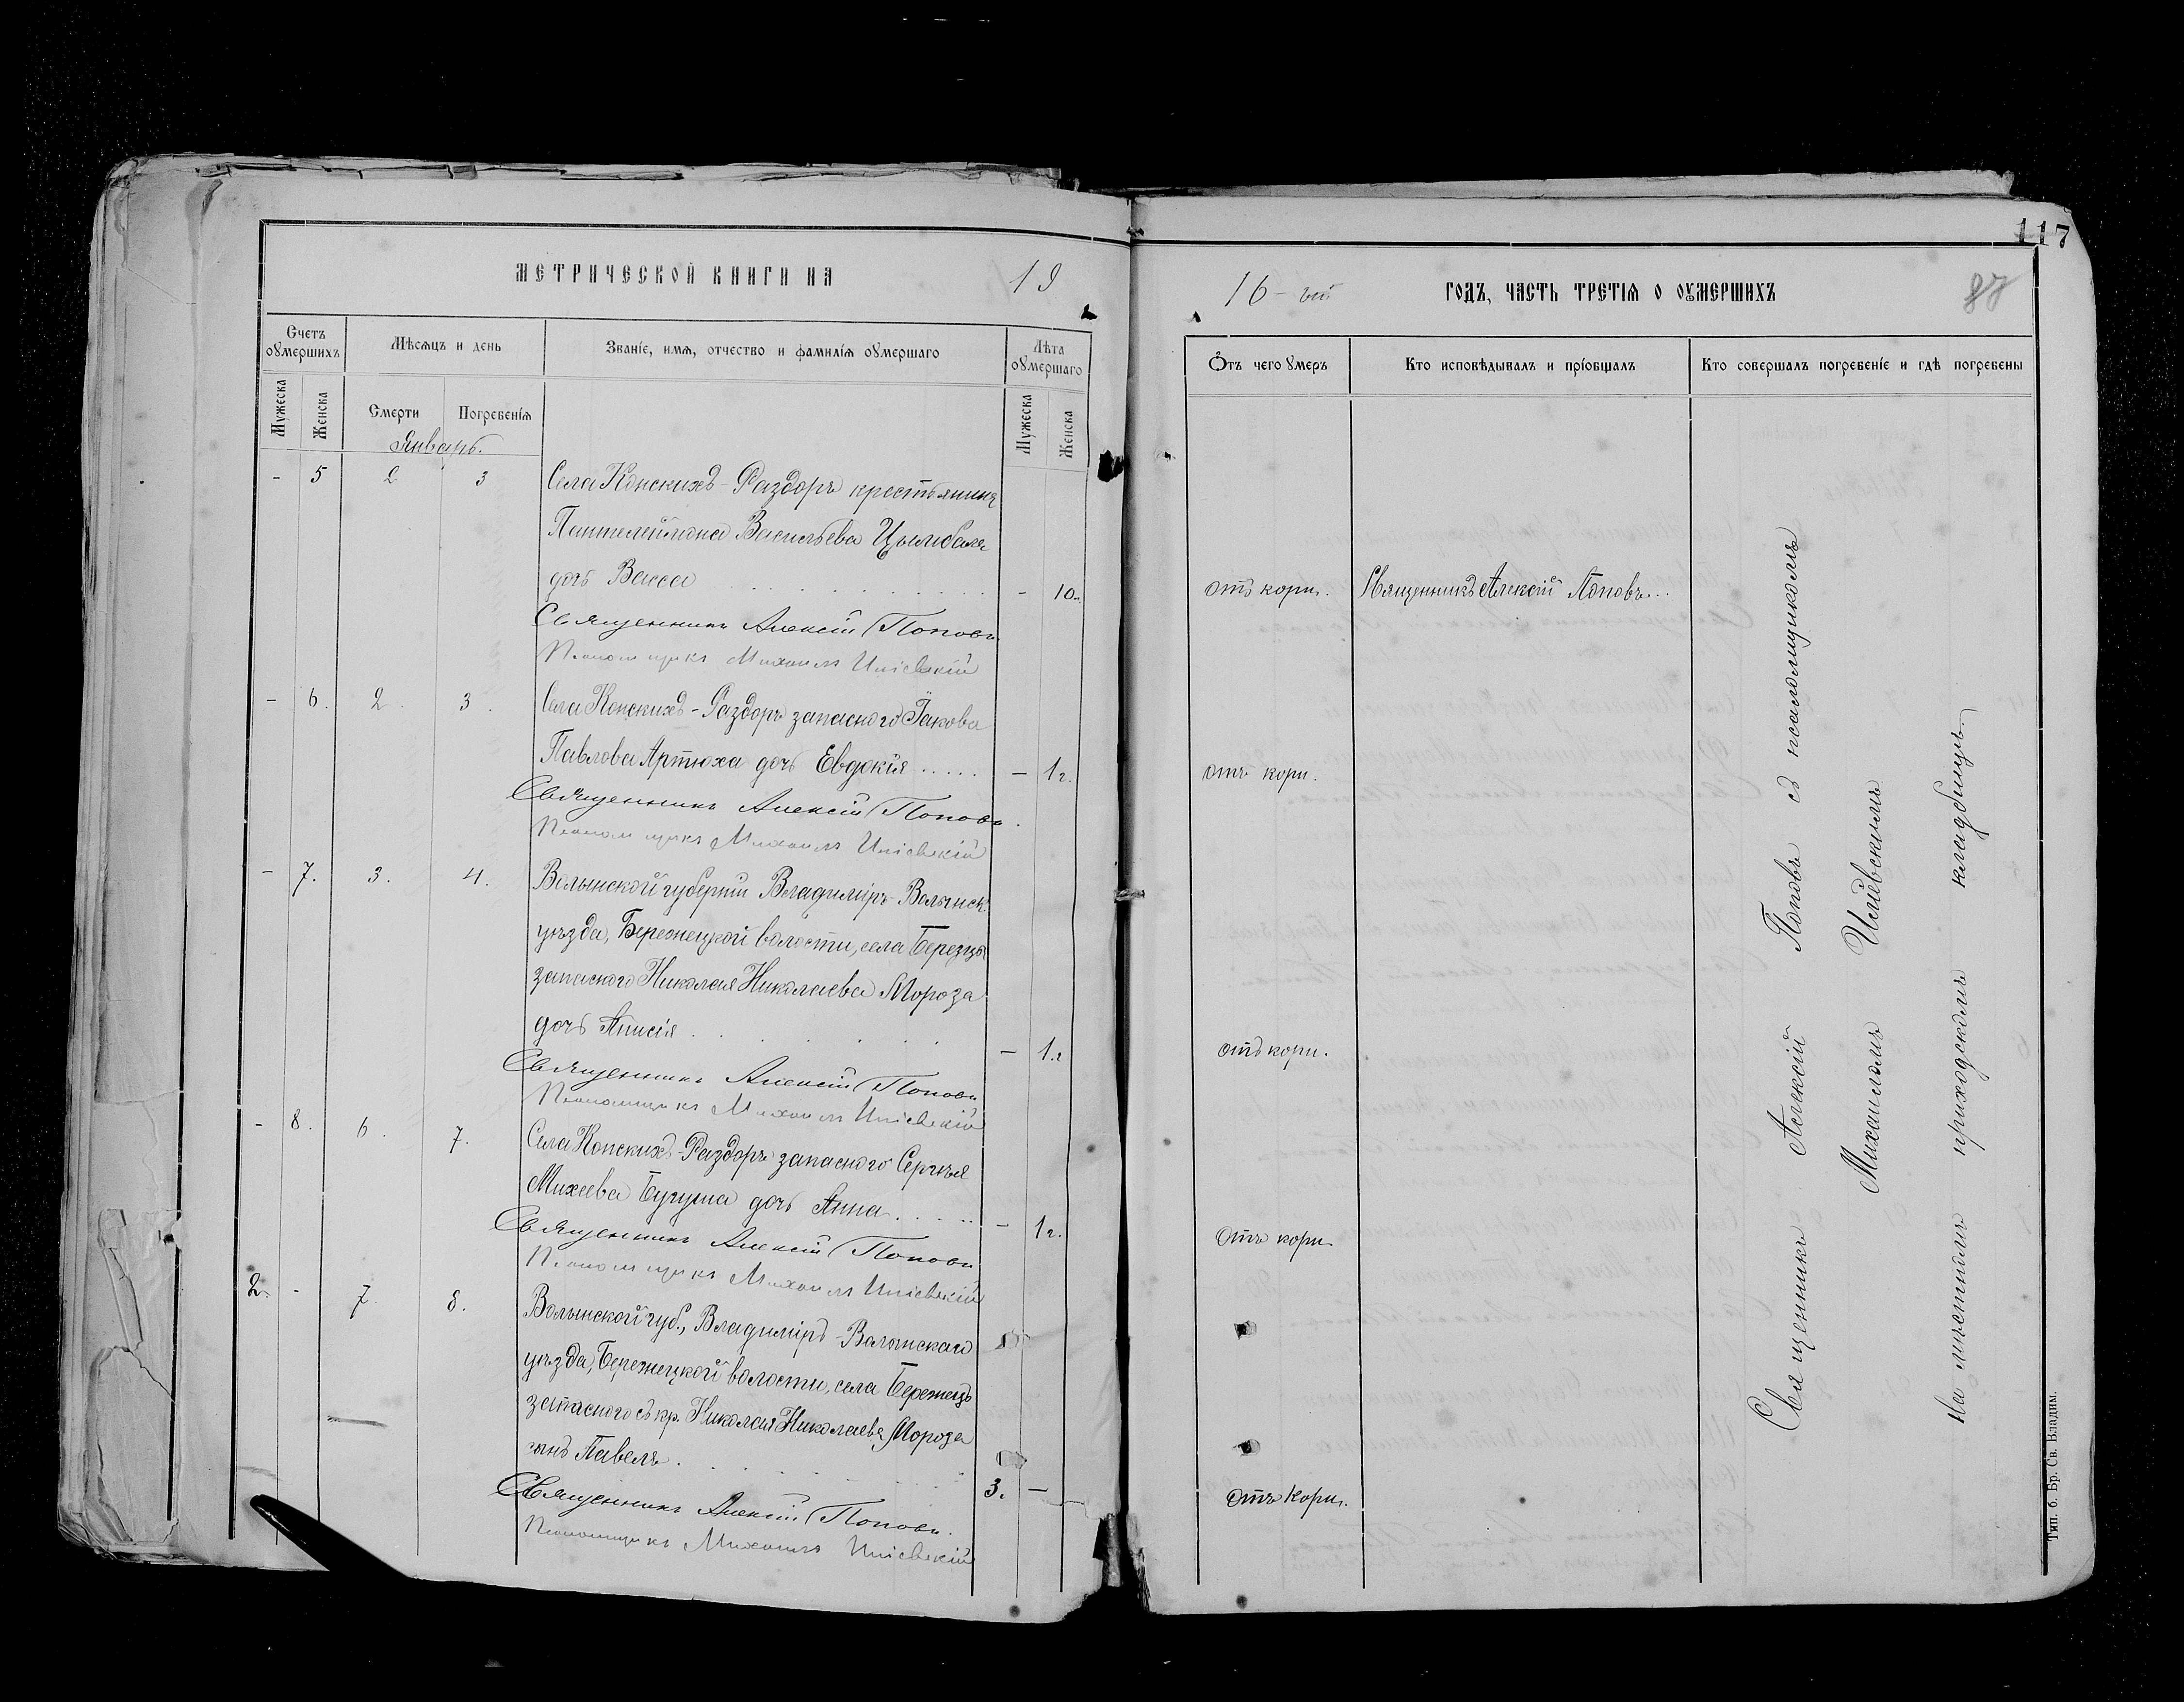 117
МЕТРИЧЕСКОЙ КНИГИ НА 19
16-ый ГОДЪ, ЧАСТЬ ТРЕТІѦ О ОУМЕРШИХЪ 87
Счетъ оумершихъ
Мѣсѧцъ и день
Званіе, имѧ, отчество и фамиліѧ оумершаго
Лѣта оумершаго
Отъ чего умеръ
Кто исповѣдывалъ и пріобщалъ
Кто совершалъ погребеніе и гдѣ погребены
Мужеска
Женска
Смерти
Погребеніѧ
Мужеска
Женска
Январь.
- 5 2 3 Села Конскихъ-Раздоръ крестьянина
Пантелеймона Васильева Цымбала
дочь Васса . . . . . . . . . - 10. отъ кори. Священникъ Алексій Поповъ...
Священникъ Алексій Поповъ
Псаломщикъ Михаилъ Иліевскій
- 6. 2. 3. Села Конскихъ-Раздоръ запасного Іакова
Павлова Артюха дочь Евдокія ..... - 1 г. отъ кори.
Священникъ Алексій Поповъ.
Псаломщикъ Михаилъ Иліевскій
- 7. 3. 4. Волынской губерніи Владиміръ-Волынск.
уѣзда, Бережецкой волости, села Березцы
запасного Николая Николаева Мороза
дочь Анисія . . . . . . - 1. г отъ кори.
Священникъ Алексій Поповъ
Псаломщикъ Михаилъ Иліевскій
- 8. 6. 7. Села Конскихъ-Раздоръ запасного Сергѣя
Михеева Бугуша дочь Анна . . . . . - 1 г. Отъ кори.
Священникъ Алексій Поповъ
Псаломщикъ Михаилъ Иліевскій
2. - 7. 8. Волынской губ., Владиміръ-Волынскаго
уѣзда, Бережецкой волости, села Бережецъ
запасного съ кр. Николая Николаева Мороза
сынъ Павелъ . . . . . . . 3. - Отъ кори.
Священникъ Алексій Поповъ.
Псаломщикъ Михаилъ Иліевскій
Священникъ Алексій Поповъ съ псаломщикомъ
Михаиломъ Иліевскимъ
На мѣстномъ приходскомъ кладбищѣ.
Тип. б. Бр. Св. Владим.